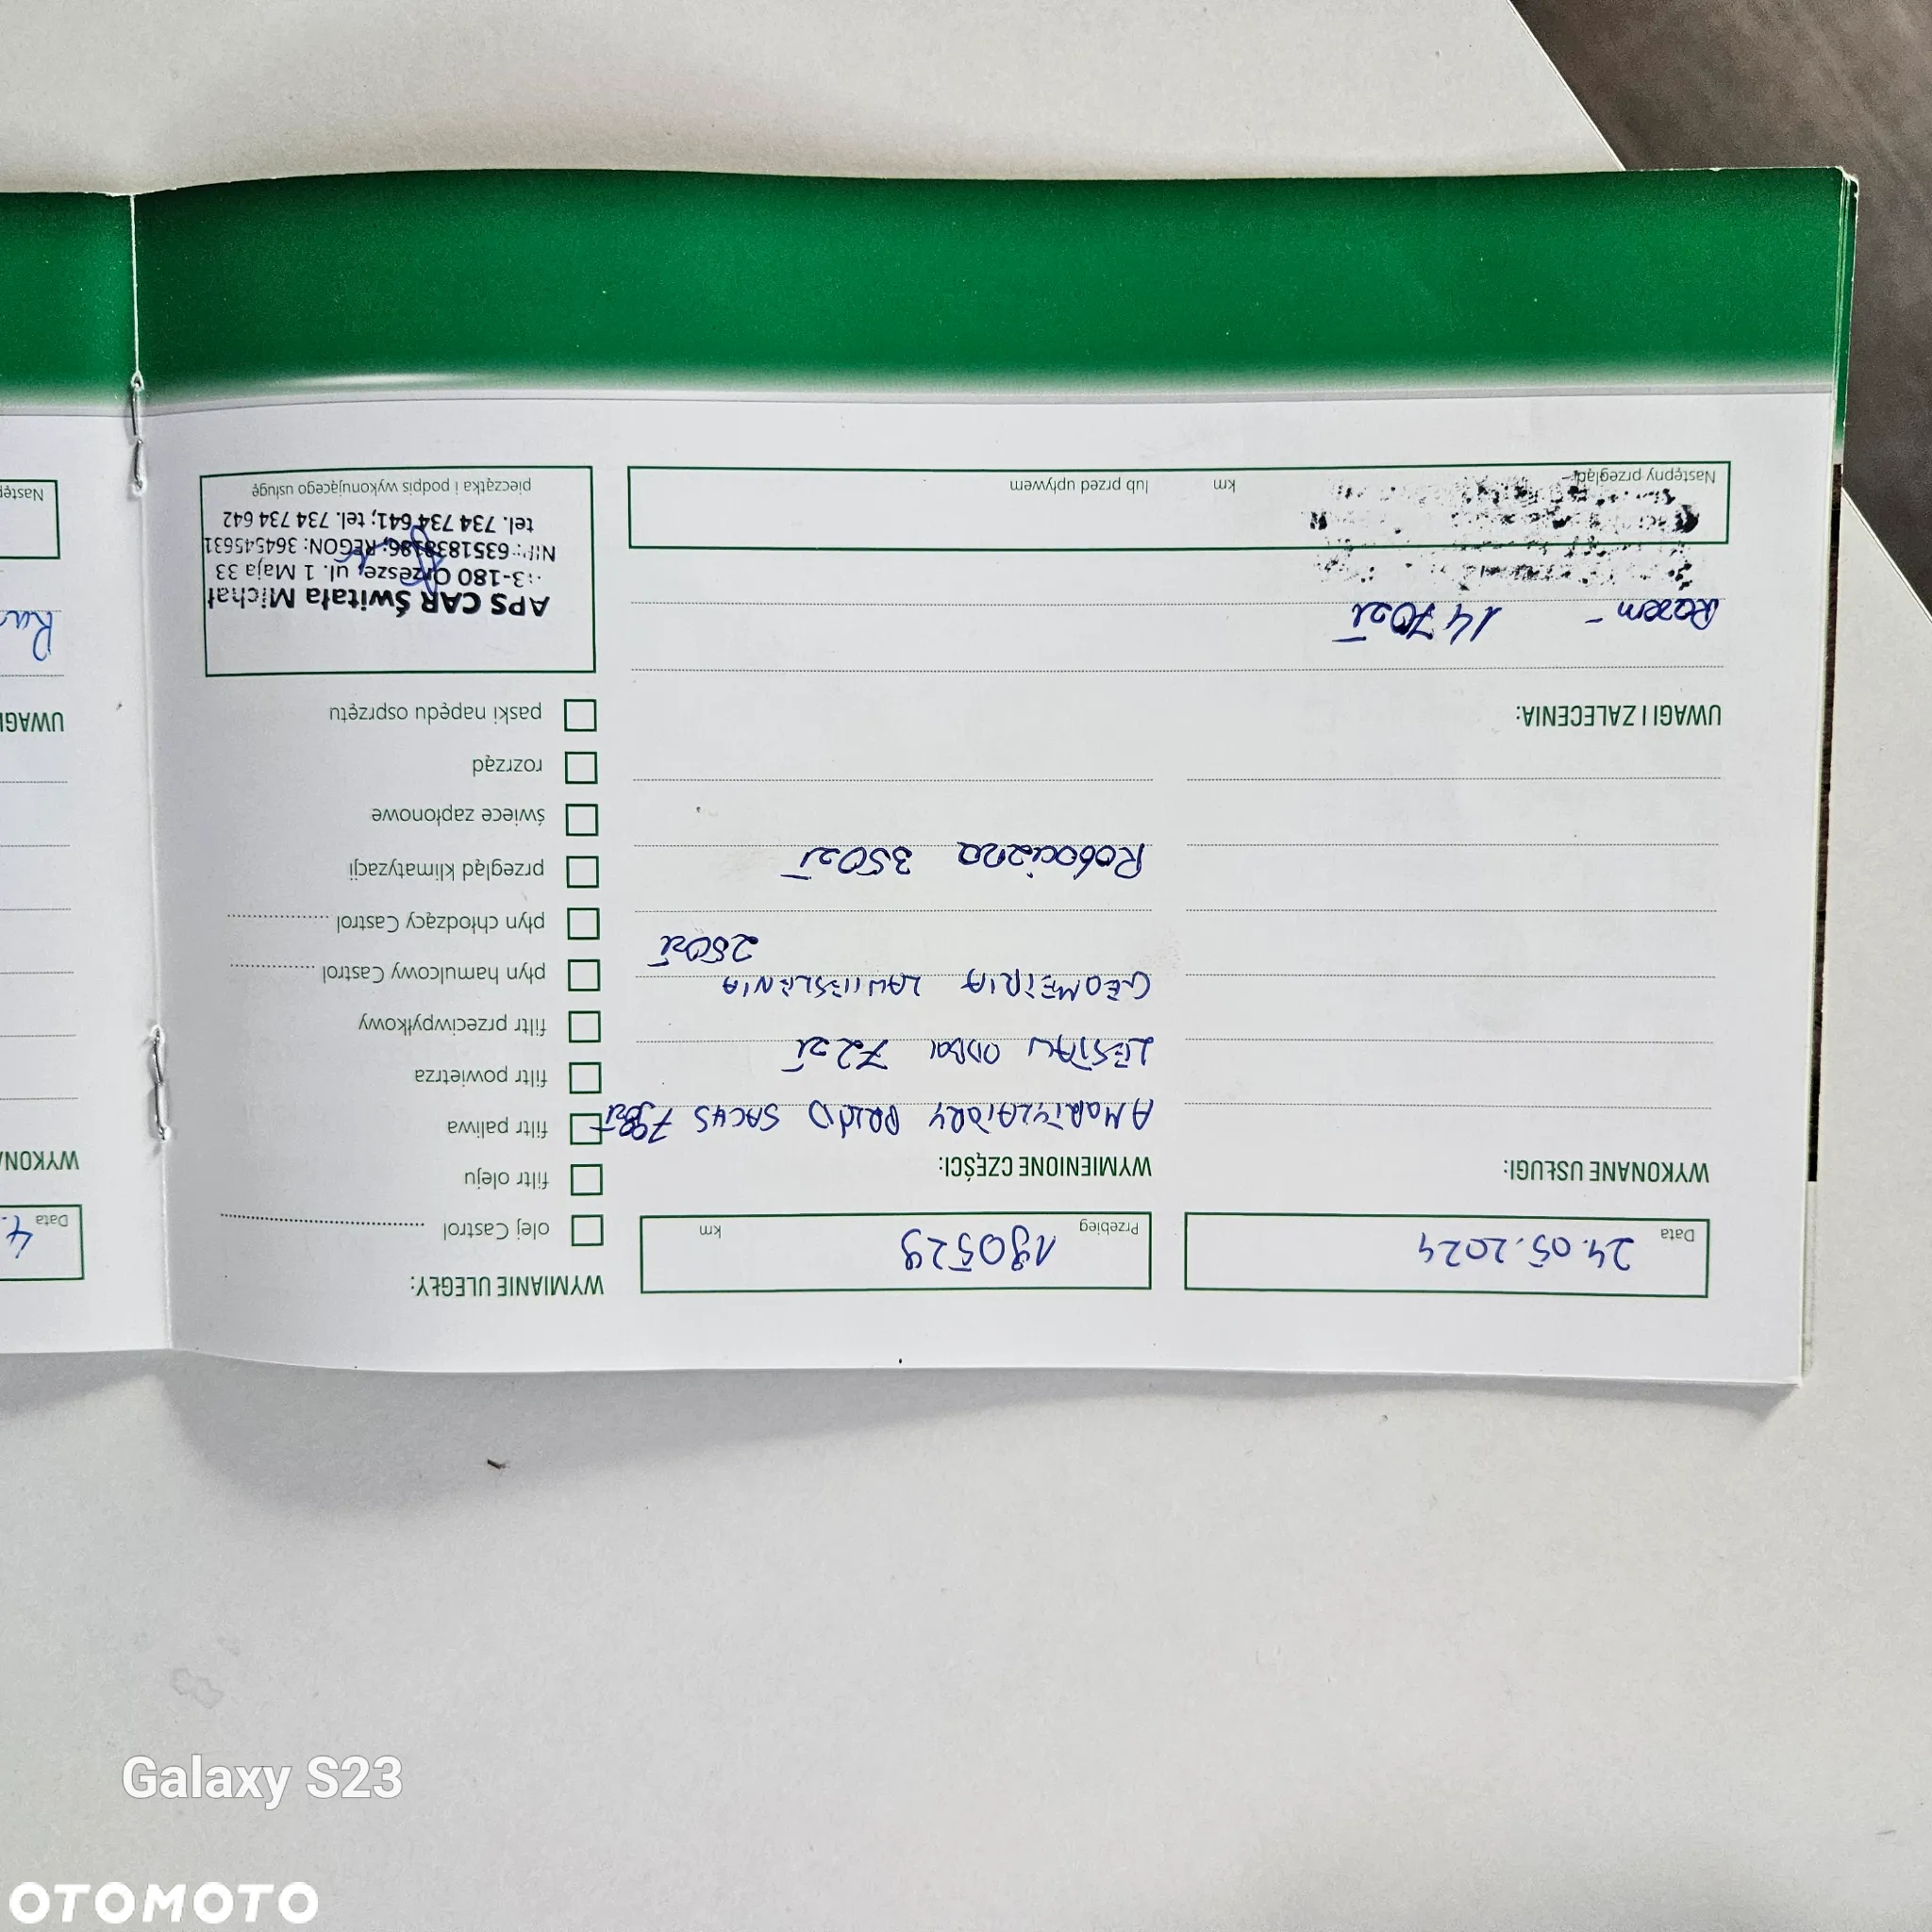 Data 24.05.2024
Przebieg 190529 km
WYMIANIE ULEGŁY:
WYKONANE USŁUGI:
WYMIENIONE CZĘŚCI:
AMORTYZATORY PRZÓD SACHS
ZESTAW ODBOI 72 zł
GEOMETRIA ZAWIESZENIA
250zł
Robocizna 350zł
olej Castrol
filtr oleju
filtr paliwa
filtr powietrza
filtr przeciwpyłkowy
płyn hamulcowy Castrol
płyn chłodzący Castrol
przegląd klimatyzacji
świece zapłonowe
rozrząd
paski napędu osprzętu
UWAGI I ZALECENIA:
Razem - 1470zł
Następny przegląd: km lub przed upływem
APS CAR Świtała Michał
3-180 Orzesze, ul. 1 Maja 33
NIP: 6351838186; REGON: 364545631
tel. 734 734 641; tel. 734 734 642
pieczątka i podpis wykonującego usługę
Data 4.
WYKONA
UWAGI
Ra
Następ
Galaxy S23
OTOMOTO